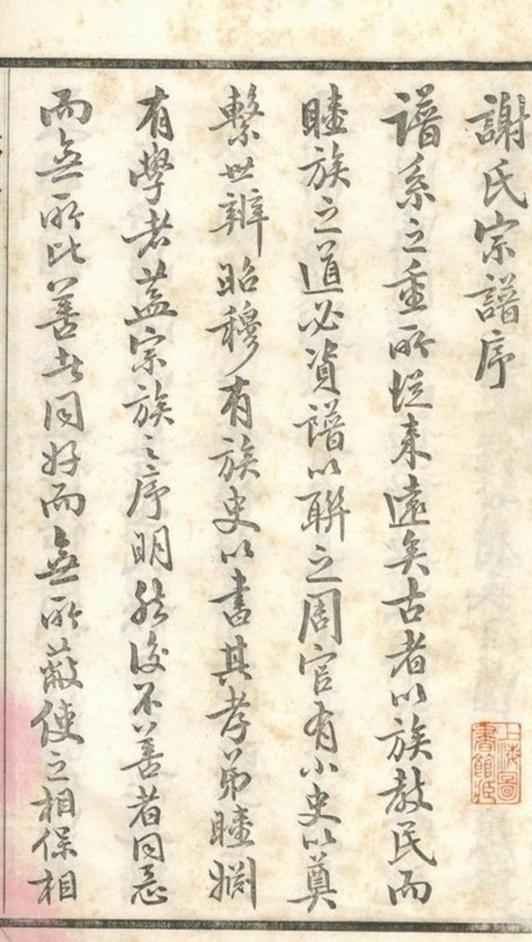 謝氏宗譜序
譜系之重所從来遠矣古者以族教民而
睦族之道必資譜以聯之周官有小史以奠
繫世辨昭穆有族史以書其孝弟睦婣
有學者蓋宗族之序明然後不善者同惡
而無所比善者同好而無所蔽使之相保相
上海圖書館